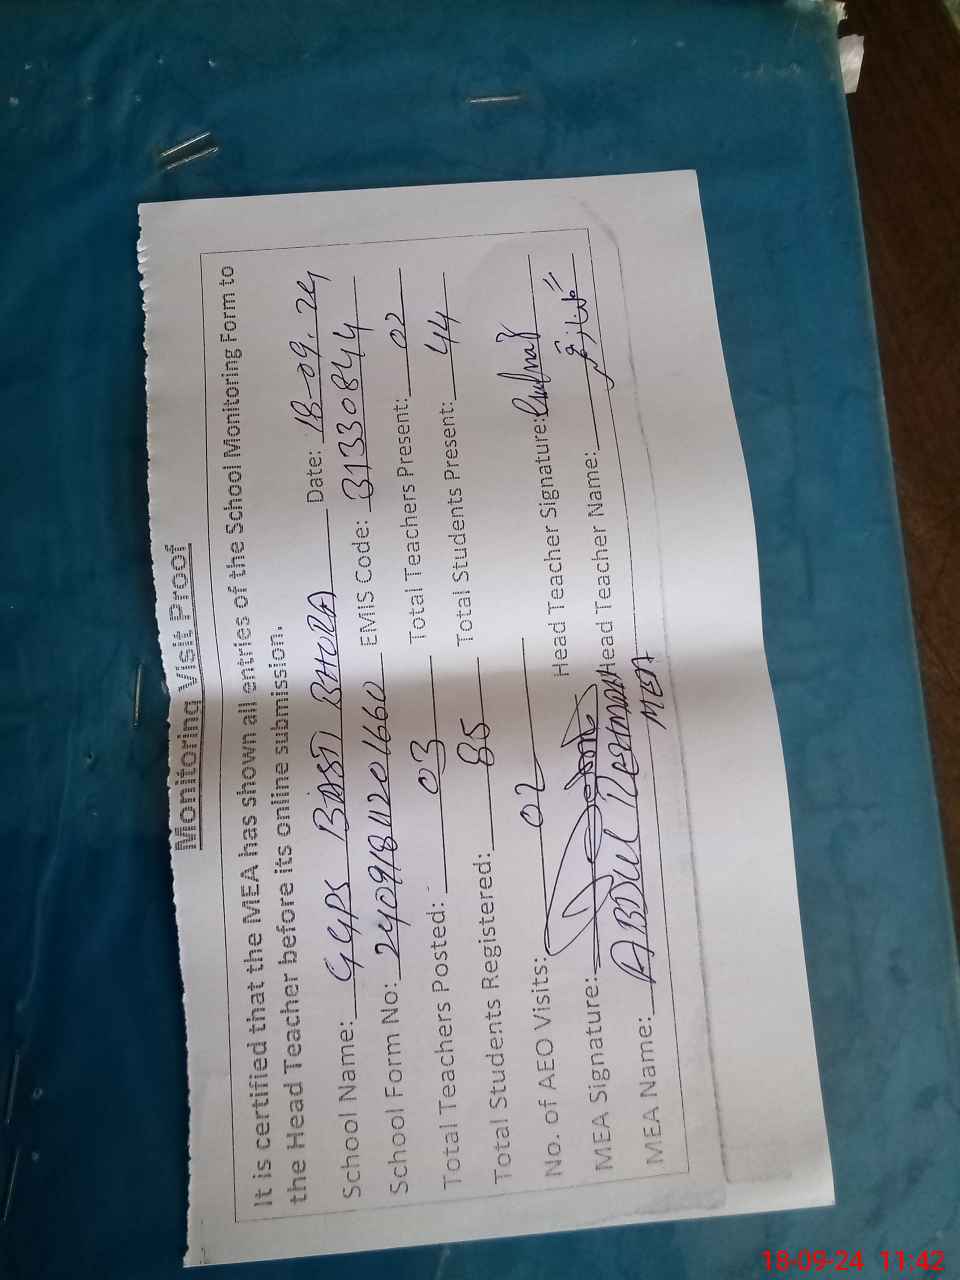 Monitoring Visit Proof
It is certified that the MEA has shown all entries of the School Monitoring Form to
the Head Teacher before its online submission.
School Name: GGPS BASTI BHORA Date: 18-09-24
School Form No: 24091811201660 EMIS Code: 31330844
Total Teachers Posted: 03 Total Teachers Present: 02
Total Students Registered: 85 Total Students Present: 44
No. of AEO Visits: 02
MEA Signature: Head Teacher Signature:
MEA Name: ABDUL REHMAN Head Teacher Name:
MEA
18-09-24 11:42